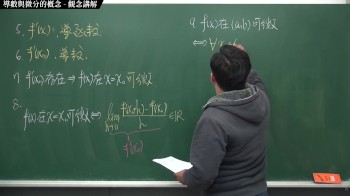 導數與微分的概念-觀念講解
5. f'(x):導函數
6. f'(x₀):導數
7. f'(x₀)存在⇒f(x)在x=x₀可微
8. f(x)在x=x₀可微⇔lim h→0 f(x₀+h)-f(x₀) / h ∈ℝ
f'(x₀)
9. f(x)在(a,b)可微
⇔∀x₀